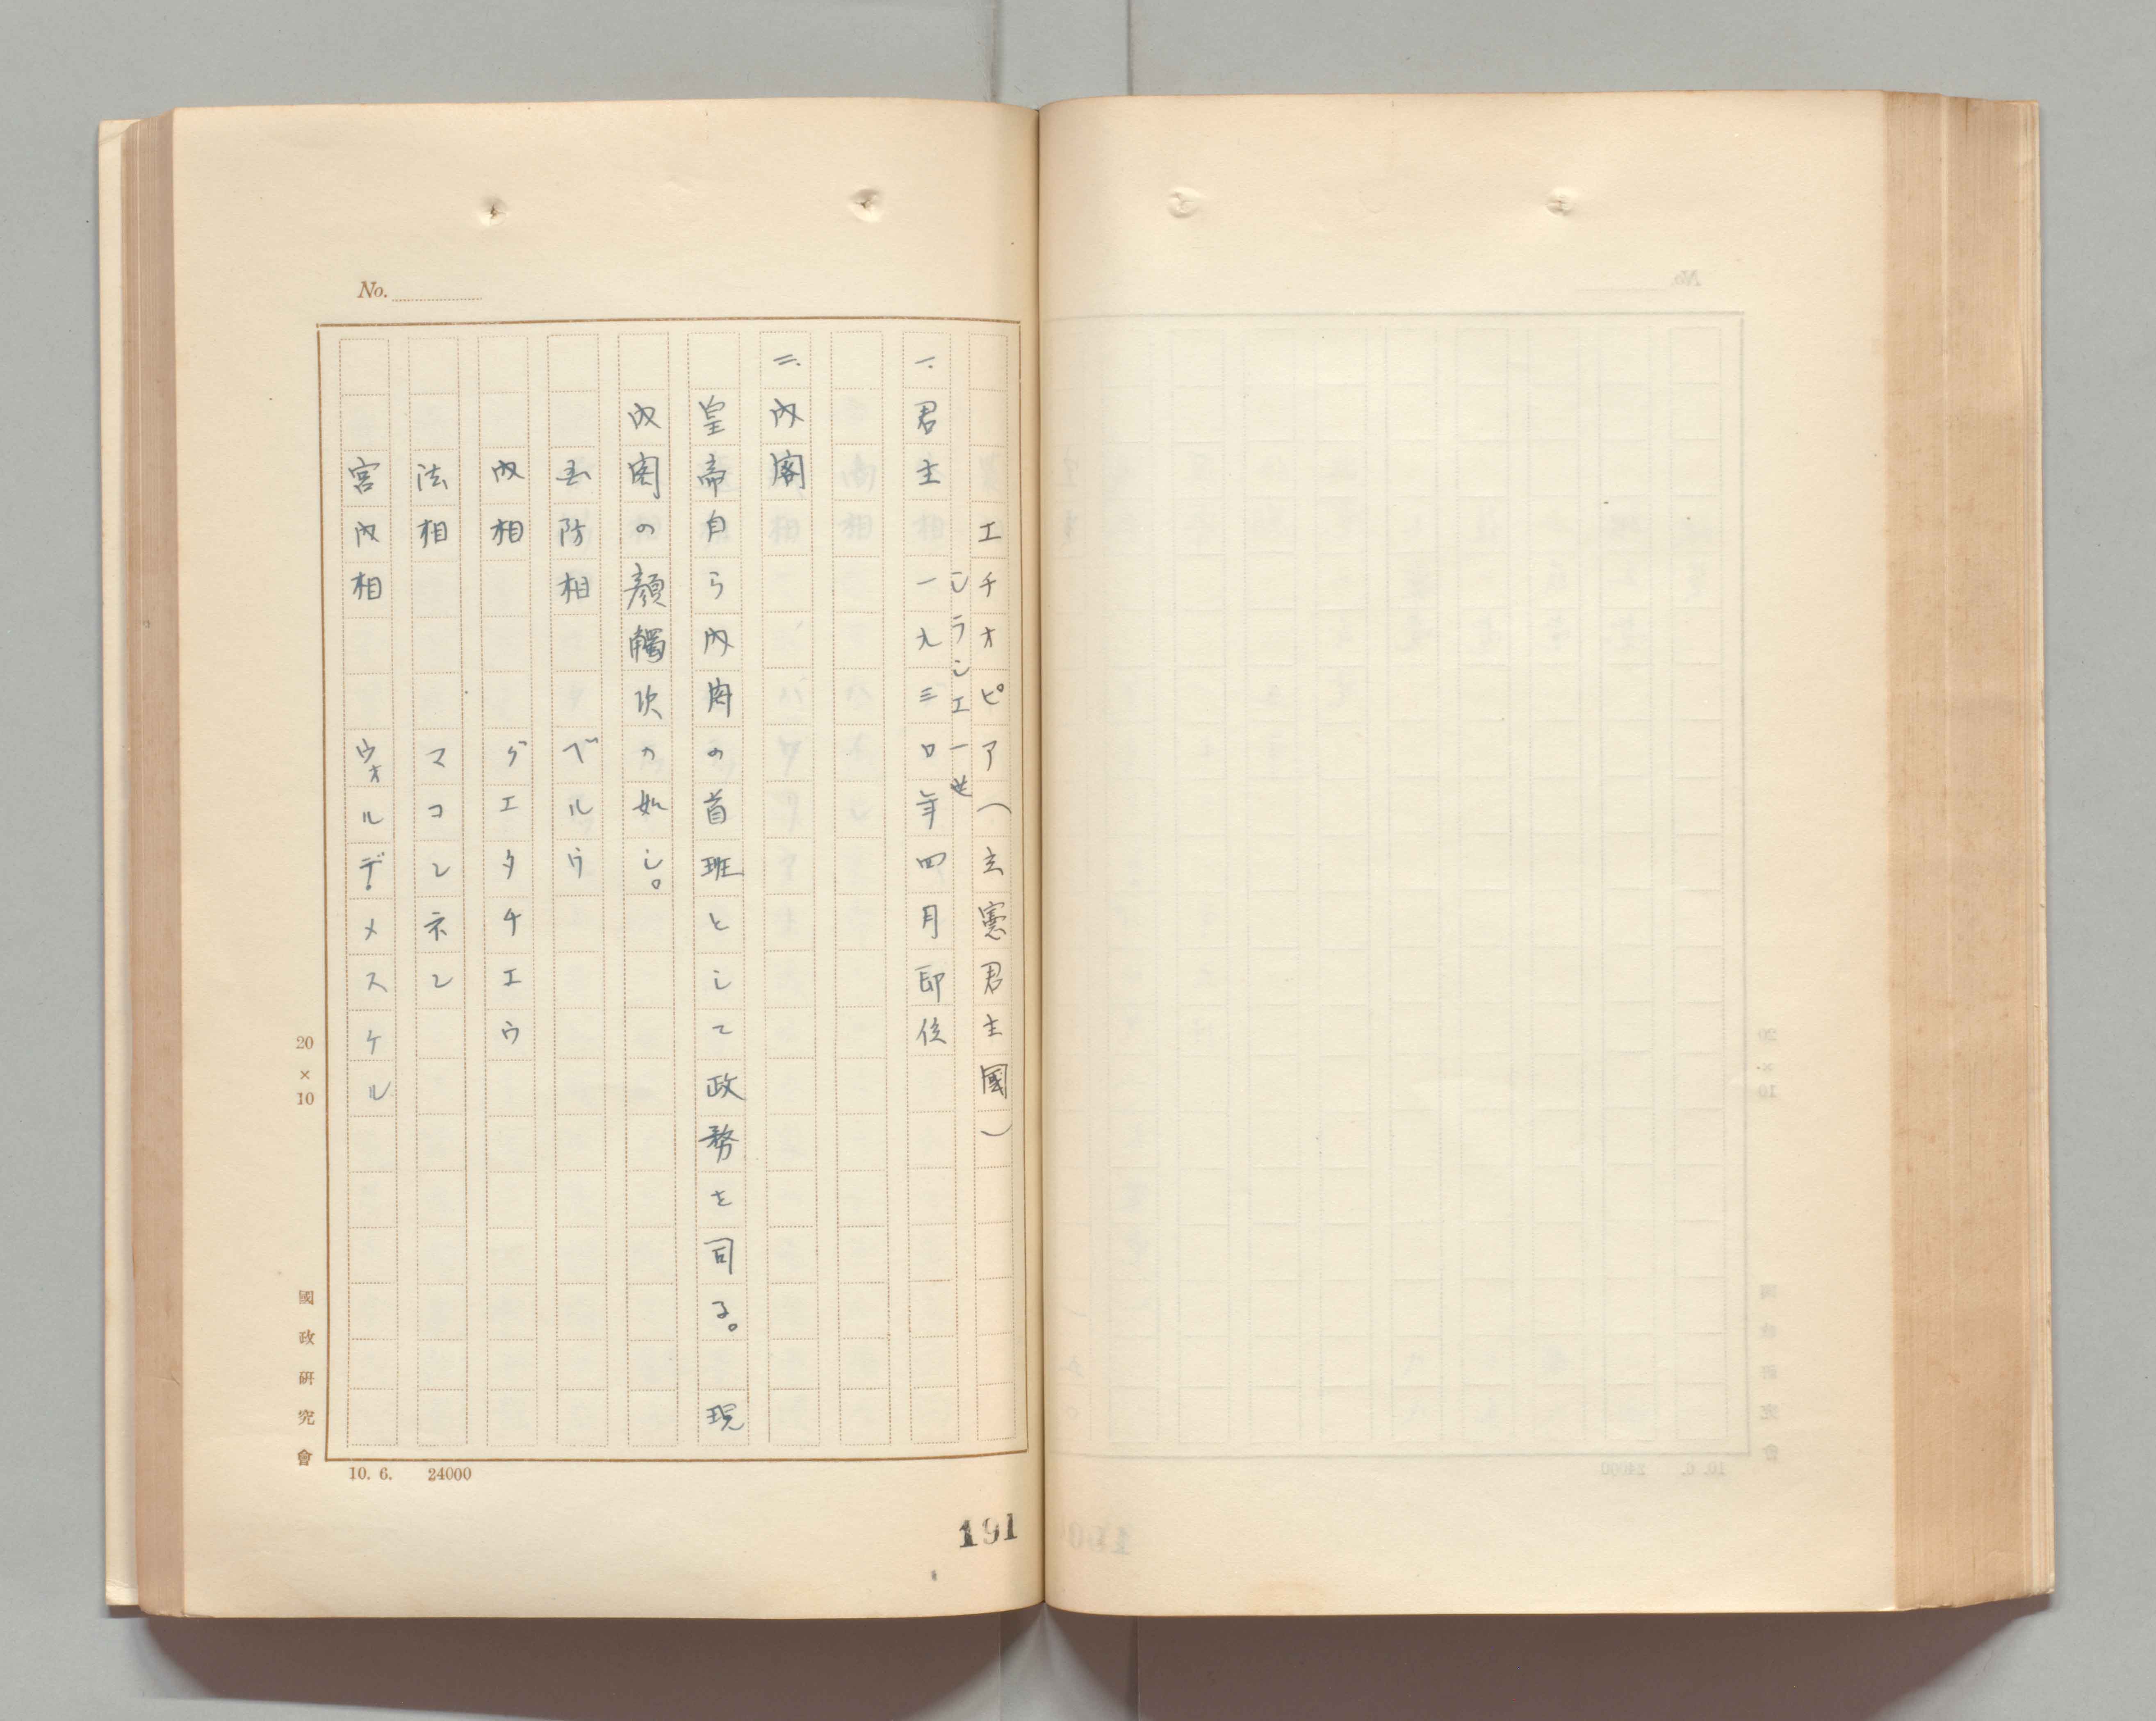 No.
エチオピア（立憲君主國）
シラシエ一世
一、君主 一九三〇年四月即位
二、内閣
皇帝自ら内閣の首班として政務を司る。 現
内閣の顔觸次の如し。
国防相 ベルウ
内相 ゲエタチエウ
法相 マコンネン
宮内相 ウオルデ・メスケル
20×10
國政研究會
10. 6. 24000
191